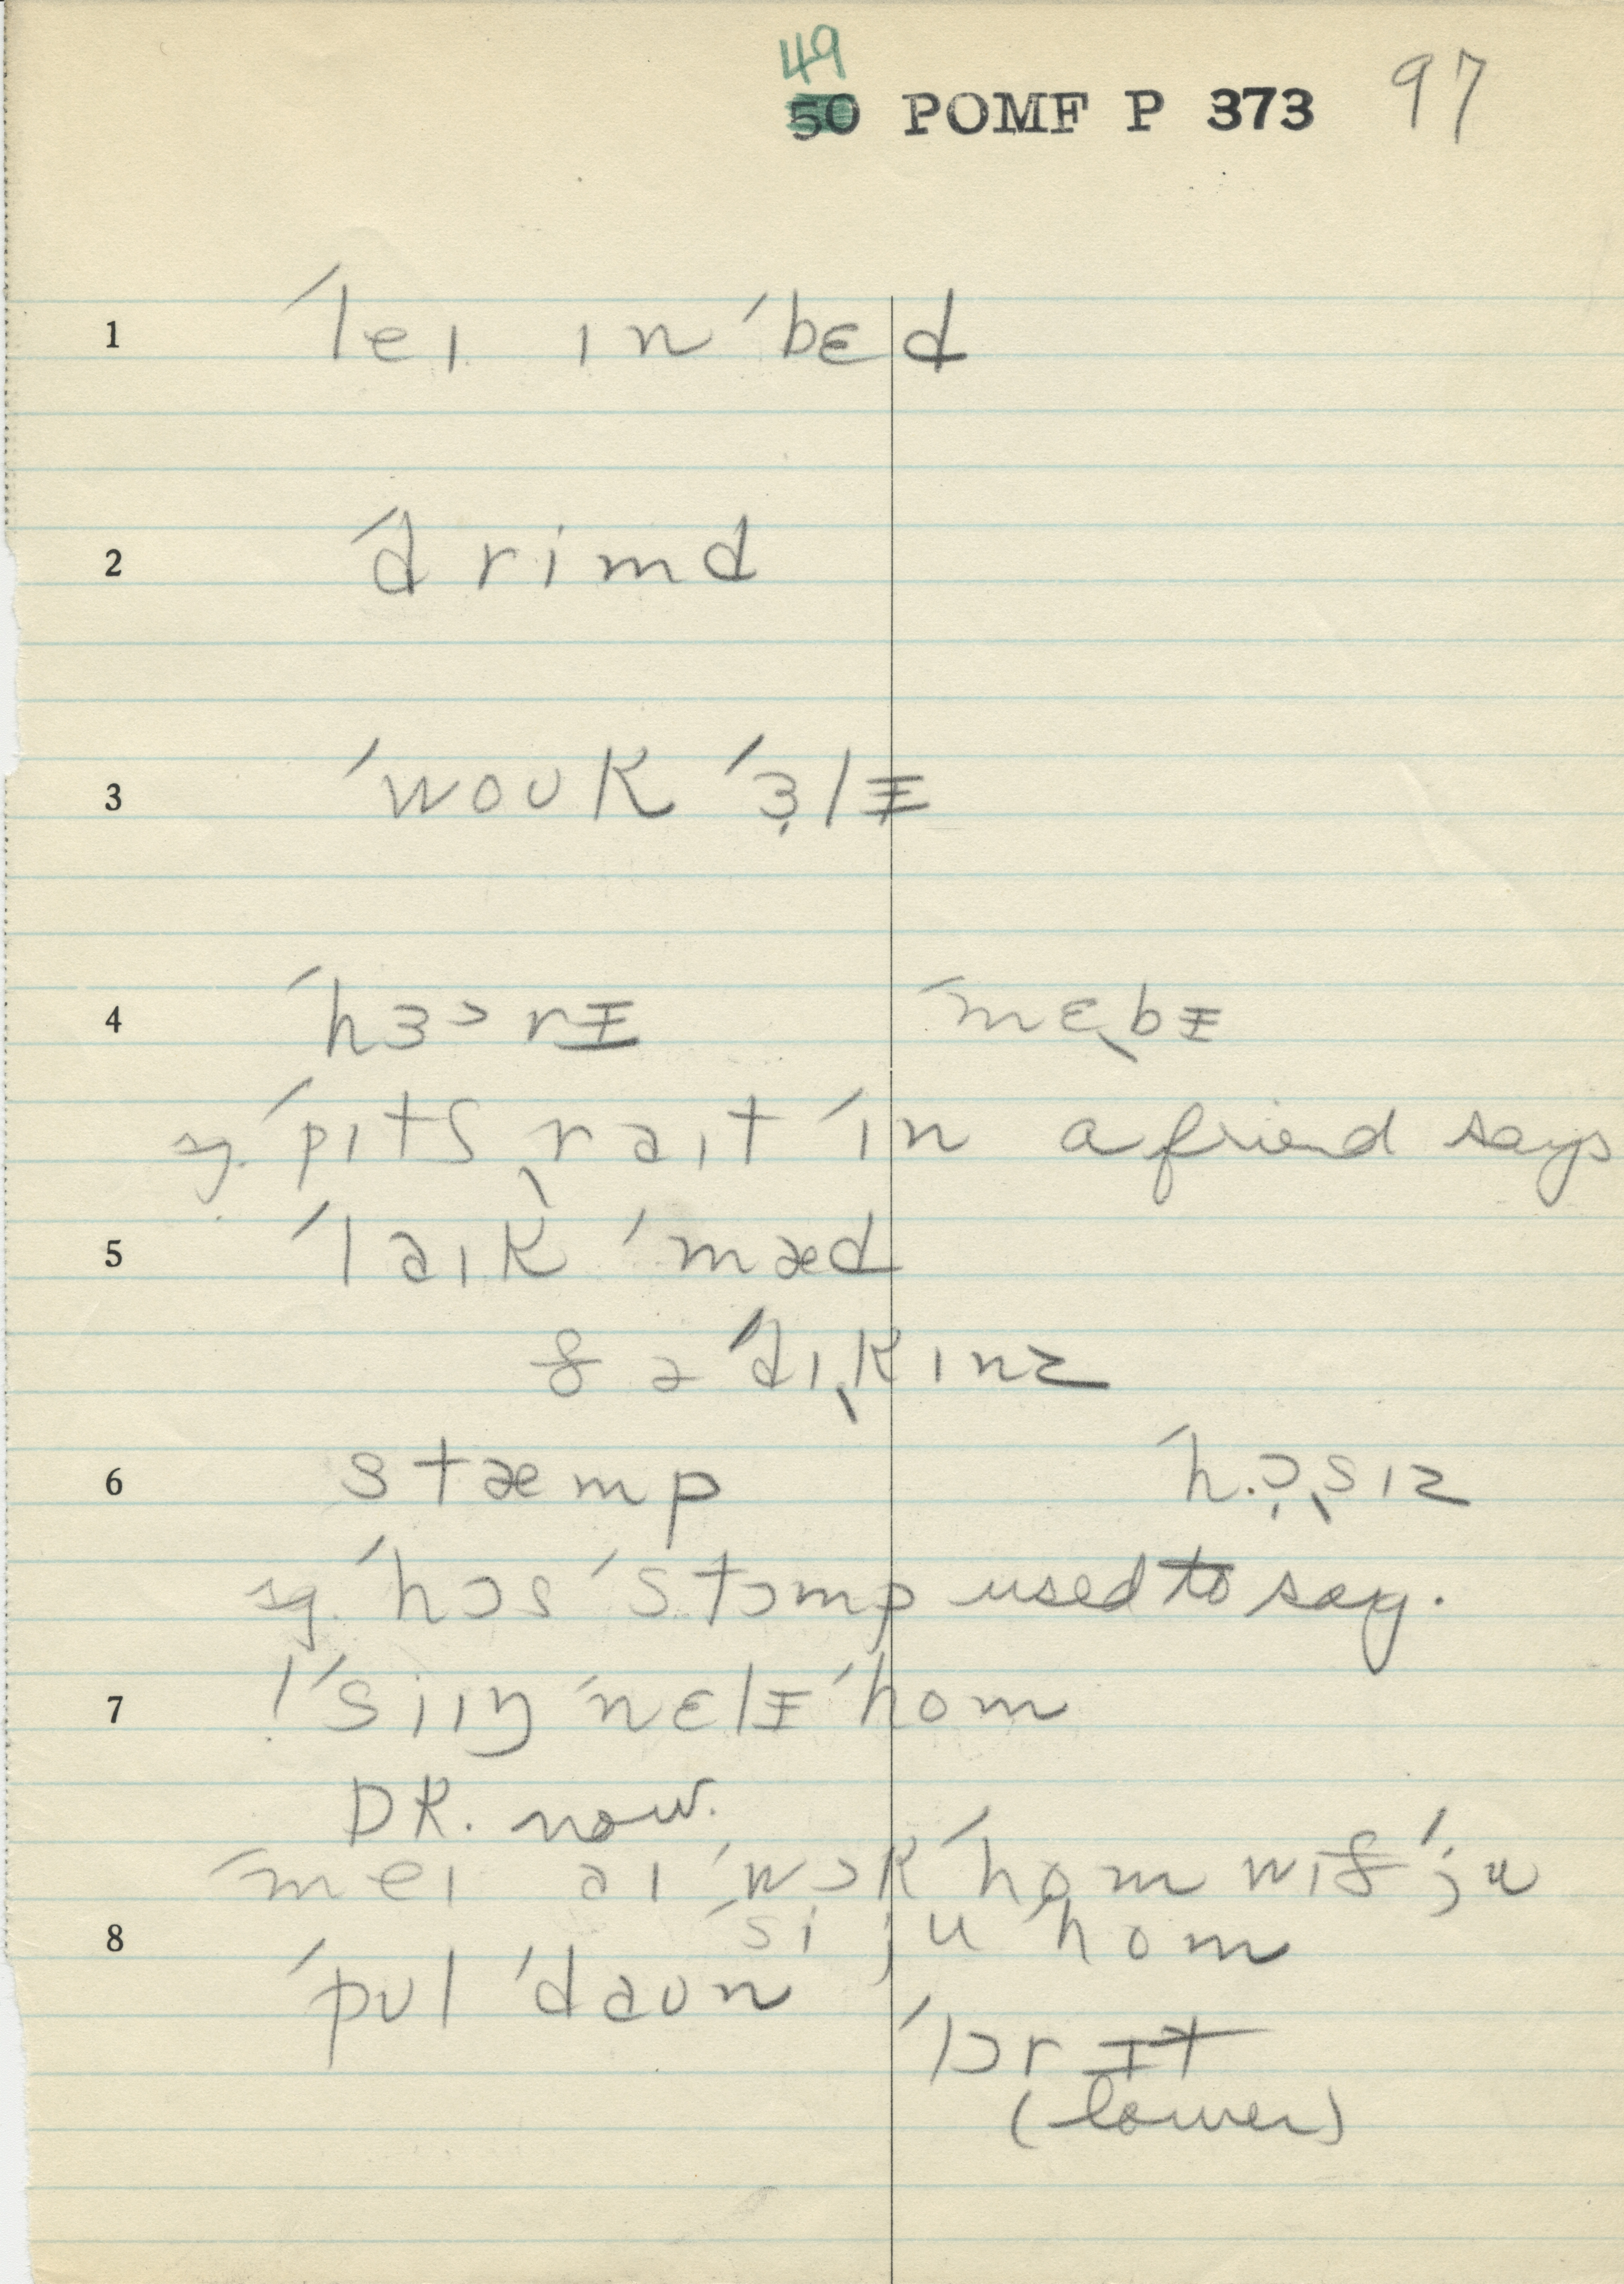 49
50 POMF P 373 97
1 ˈleɪ ɪn ˈbɛd
2 ˈdrimd
3 ˈwoʊk ˈɜ̣lᵻ
4 ˈhɜɔrᵻ ˈmɛˌbᵻ
sg. ˈpɪts ˌraɪt ˈɪn a friend says
5 ˈlaɪk ˈmæd
ðə ˈdɪˌkɪnz
6 stæmp ˈhɔˌsɪz
sg. ˈhɔs ˈstɔmp used to say.
7 !ˈsiɪŋ ˈnɛlᵻ ˈhom
DR. now.
ˈmeɪ aɪ ˈwɔk ˈhom wɪð ˈju
ˈsi ju ˈhom
8 ˈpʊl ˈdaʊn
ˈlɔr ᵻt
(lower)